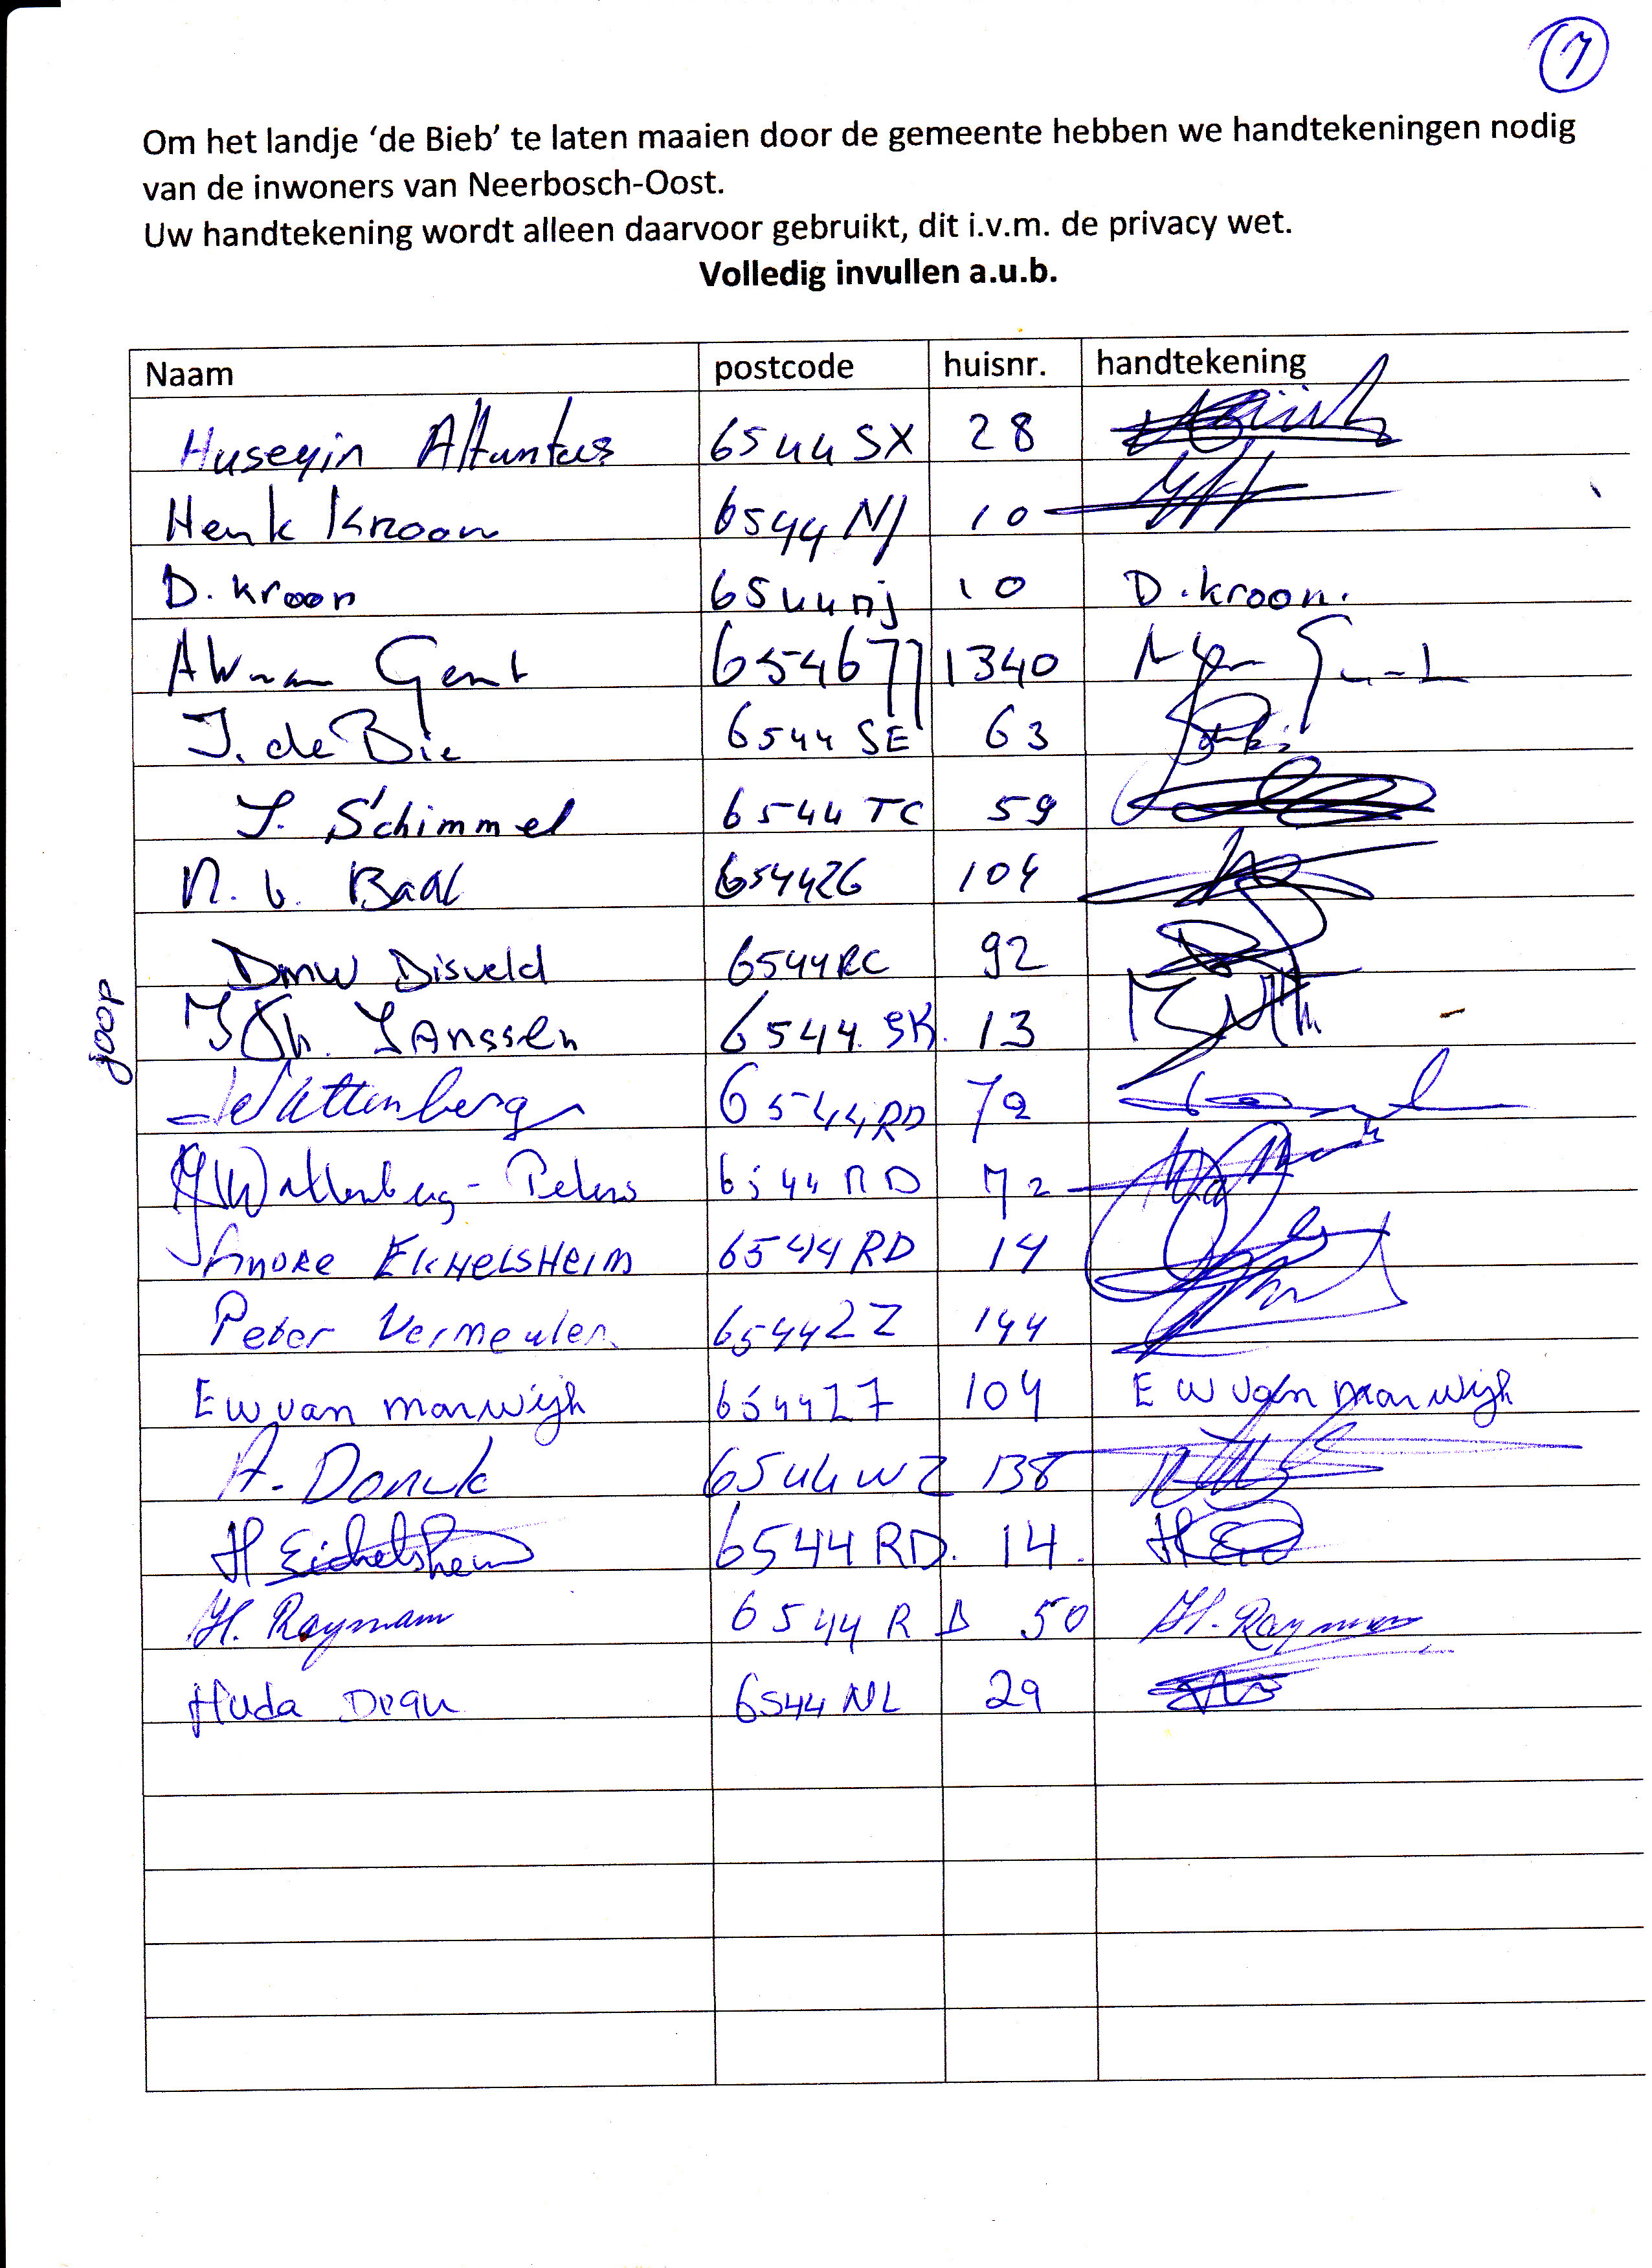 7
Om het landje ‘de Bieb’ te laten maaien door de gemeente hebben we handtekeningen nodig
van de inwoners van Neerbosch-Oost.
Uw handtekening wordt alleen daarvoor gebruikt, dit i.v.m. de privacy wet.
Volledig invullen a.u.b.
Naam postcode huisnr. handtekening
Huseyin Altuntas 6544 SX 28
Henk Kroon 6544 NJ 10
D. Kroon 6544 nj 10 D. Kroon.
Gent 6546 1340
J. de Bie 6544 SE 63
J. Schimmel 6544 TC 59
N. v. Baal 6544ZG 104
DMW Disveld 6544RC 92
joop
Janssen 6544 SK. 13
Wattenberg 6544RD 72
Wattenberg - Peters 6544 RD 72
Andre EICHELSHEIM 6544 RD 14
Peter Vermeulen 6544ZZ 144
E W van marwijh 6544ZZ 104 E W van marwijh
A. Donck 6544 WZ 138
H Eichelsheim 6544 RD. 14.
H. Rayman 6544 R D 50 H. Rayman
Huda 6544 NL 29